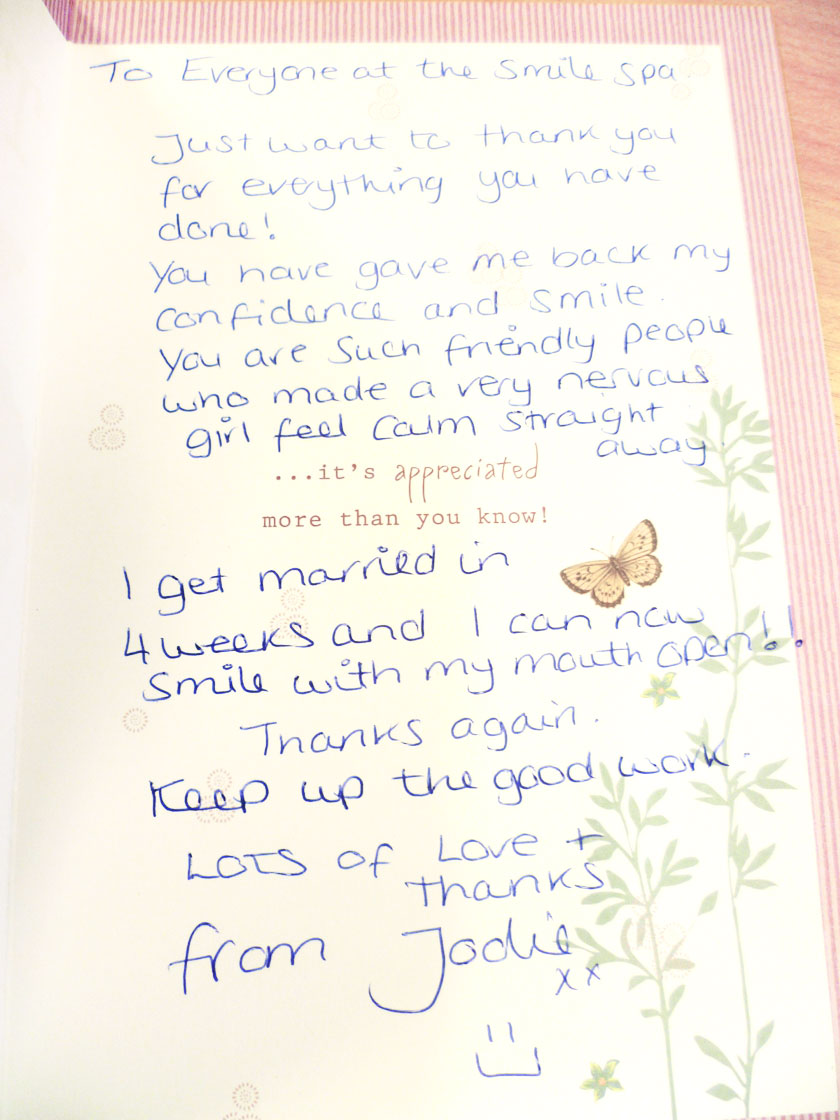 To Everyone at the Smile Spa
Just want to thank you
for everything you have
done!
You have gave me back my
confidence and smile.
You are such friendly people
who made a very nervous
girl feel calm straight
away.
...it's appreciated
more than you know!
I get married in
4 weeks and I can now
smile with my mouth open!!
Thanks again.
Keep up the good work.
LOTS of Love +
thanks
from Jodie
xx